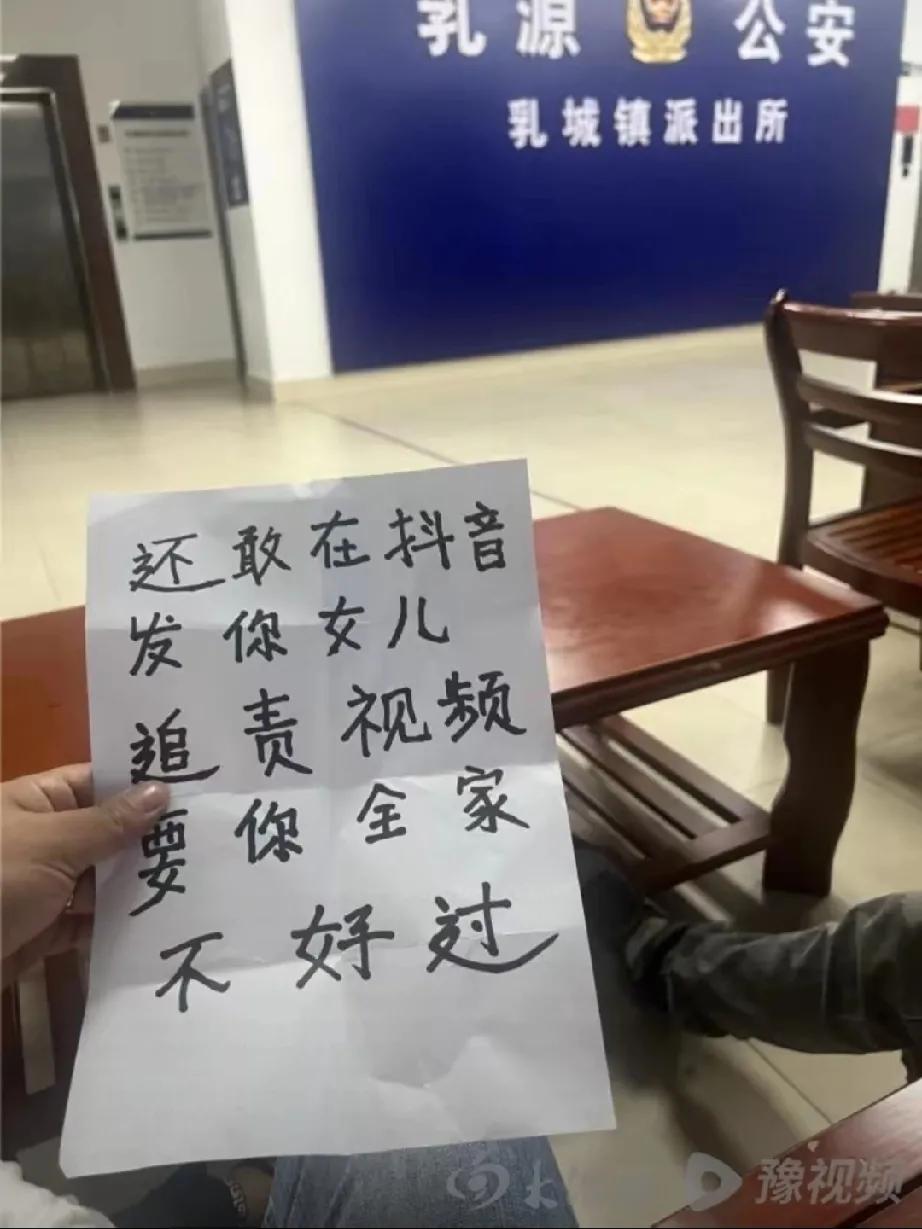 乳源 公安
乳城镇派出所
还敢在抖音
发你女儿
追责视频
要你全家
不好过
豫视频